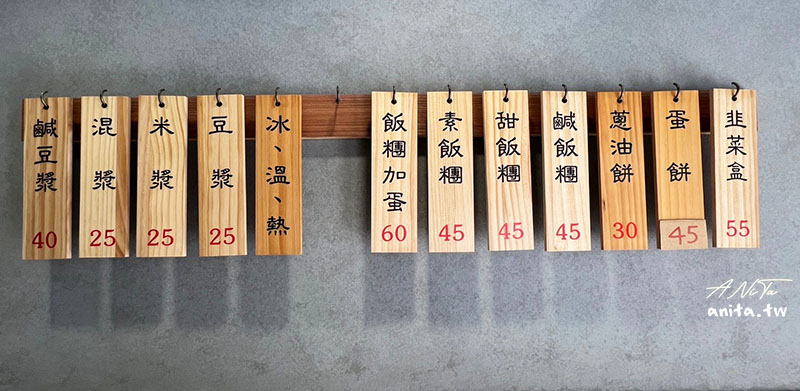 韭菜盒 55
蛋餅 45
蔥油餅 30
鹹飯糰 45
甜飯糰 45
素飯糰 45
飯糰加蛋 60
冰、溫、熱
豆漿 25
米漿 25
混漿 25
鹹豆漿 40
ANiTa
anita.tw